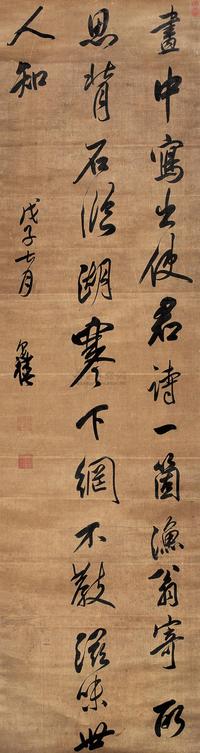 畫中寫出使君詩一箇漁翁寄所
思背石臨湖寒下網不教滋味世
人知
戊子七月